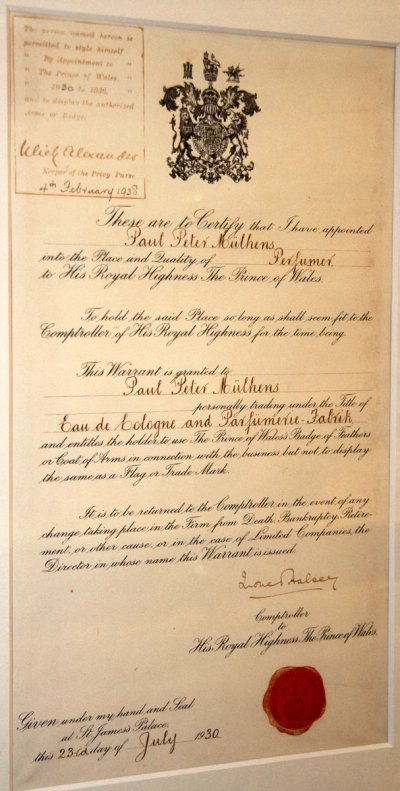 The person named hereon is
permitted to style himself
" By Appointment to "
" The Prince of Wales. "
" 1930 to 1936, "
and to display the authorised
Arms or Badge.
Ulick Alexander
Keeper of the Privy Purse
4th February 1938.
These are to Certify that I have appointed
Paul Peter Mülhens
into the Place and Quality of Perfumer
to His Royal Highness The Prince of Wales.
To hold the said Place so long as shall seem fit to the
Comptroller of His Royal Highness for the time being.
This Warrant is granted to
Paul Peter Mülhens
personally trading under the Title of
Eau de Cologne and Parfumerie-Fabrik
and entitles the holder to use The Prince of Wales's Badge of Feathers
or Coat of Arms in connection with the business but not to display
the same as a Flag or Trade Mark.
It is to be returned to the Comptroller in the event of any
change taking place in the Firm from Death, Bankruptcy, Retire-
ment, or other cause, or in the case of Limited Companies, the
Director in whose name this Warrant is issued.
Lionel Halsey
Comptroller
to
His Royal Highness The Prince of Wales.
Given under my hand and Seal
at St. James's Palace.
this 23rd day of July 1930